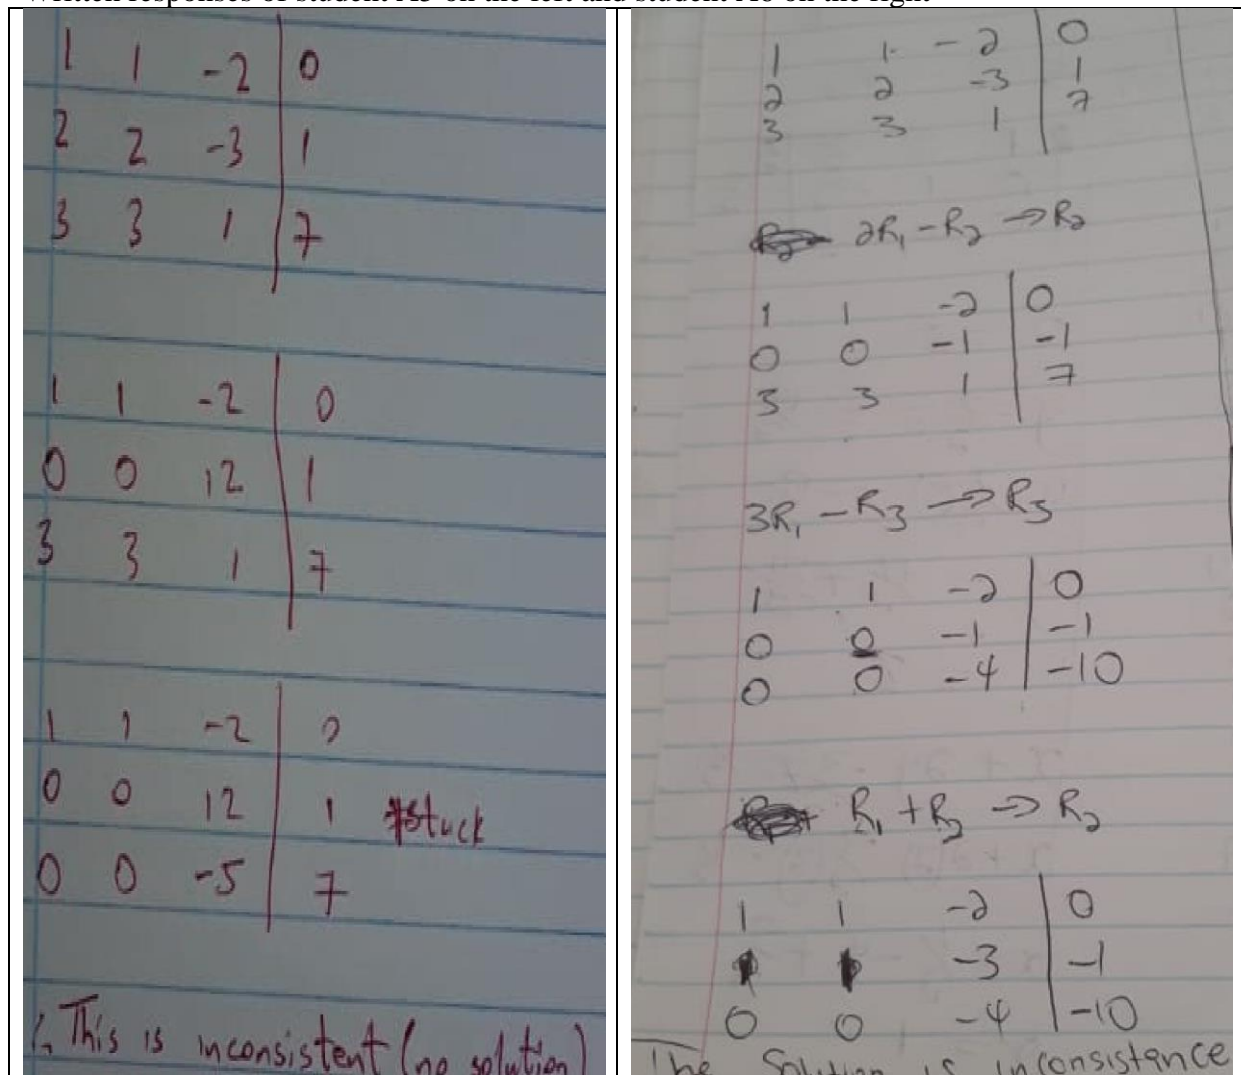 1 1 -2 | 0
2 2 -3 | 1
3 3 1 | 7
1 1 -2 | 0
0 0 12 | 1
3 3 1 | 7
1 1 -2 | 0
0 0 12 | 1 *stuck
0 0 -5 | 7
This is inconsistent (no solution)
1 1 -2 | 0
2 2 -3 | 1
3 3 1 | 7
2R₁ - R₂ → R₂
1 1 -2 | 0
0 0 -1 | -1
3 3 1 | 7
3R₁ - R₃ → R₃
1 1 -2 | 0
0 0 -1 | -1
0 0 -4 | -10
R₁ + R₂ → R₂
1 1 -2 | 0
1 1 -3 | -1
0 0 -4 | -10
The Solution is inconsistence